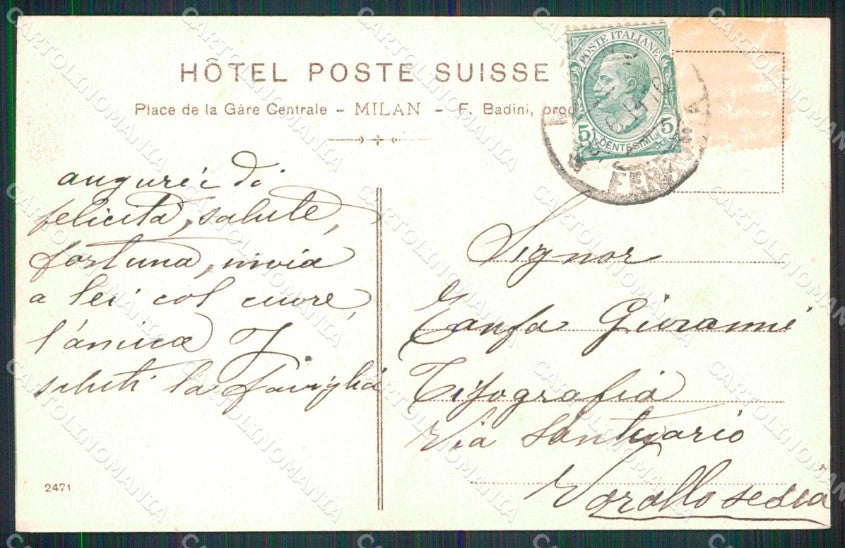 HÔTEL POSTE SUISSE
Place de la Gare Centrale - MILAN - F. Badini, prop
POSTE ITALIANE
5 5
CENTESIMI
auguri di
felicità, salute,
fortuna, invia
a lei col cuore,
l'amica J
saluti la famiglia
Signor
Canfa Giovanni
Tipografia
Via Santuario
Varallo sesia
2471
CARTOLINOMANIA